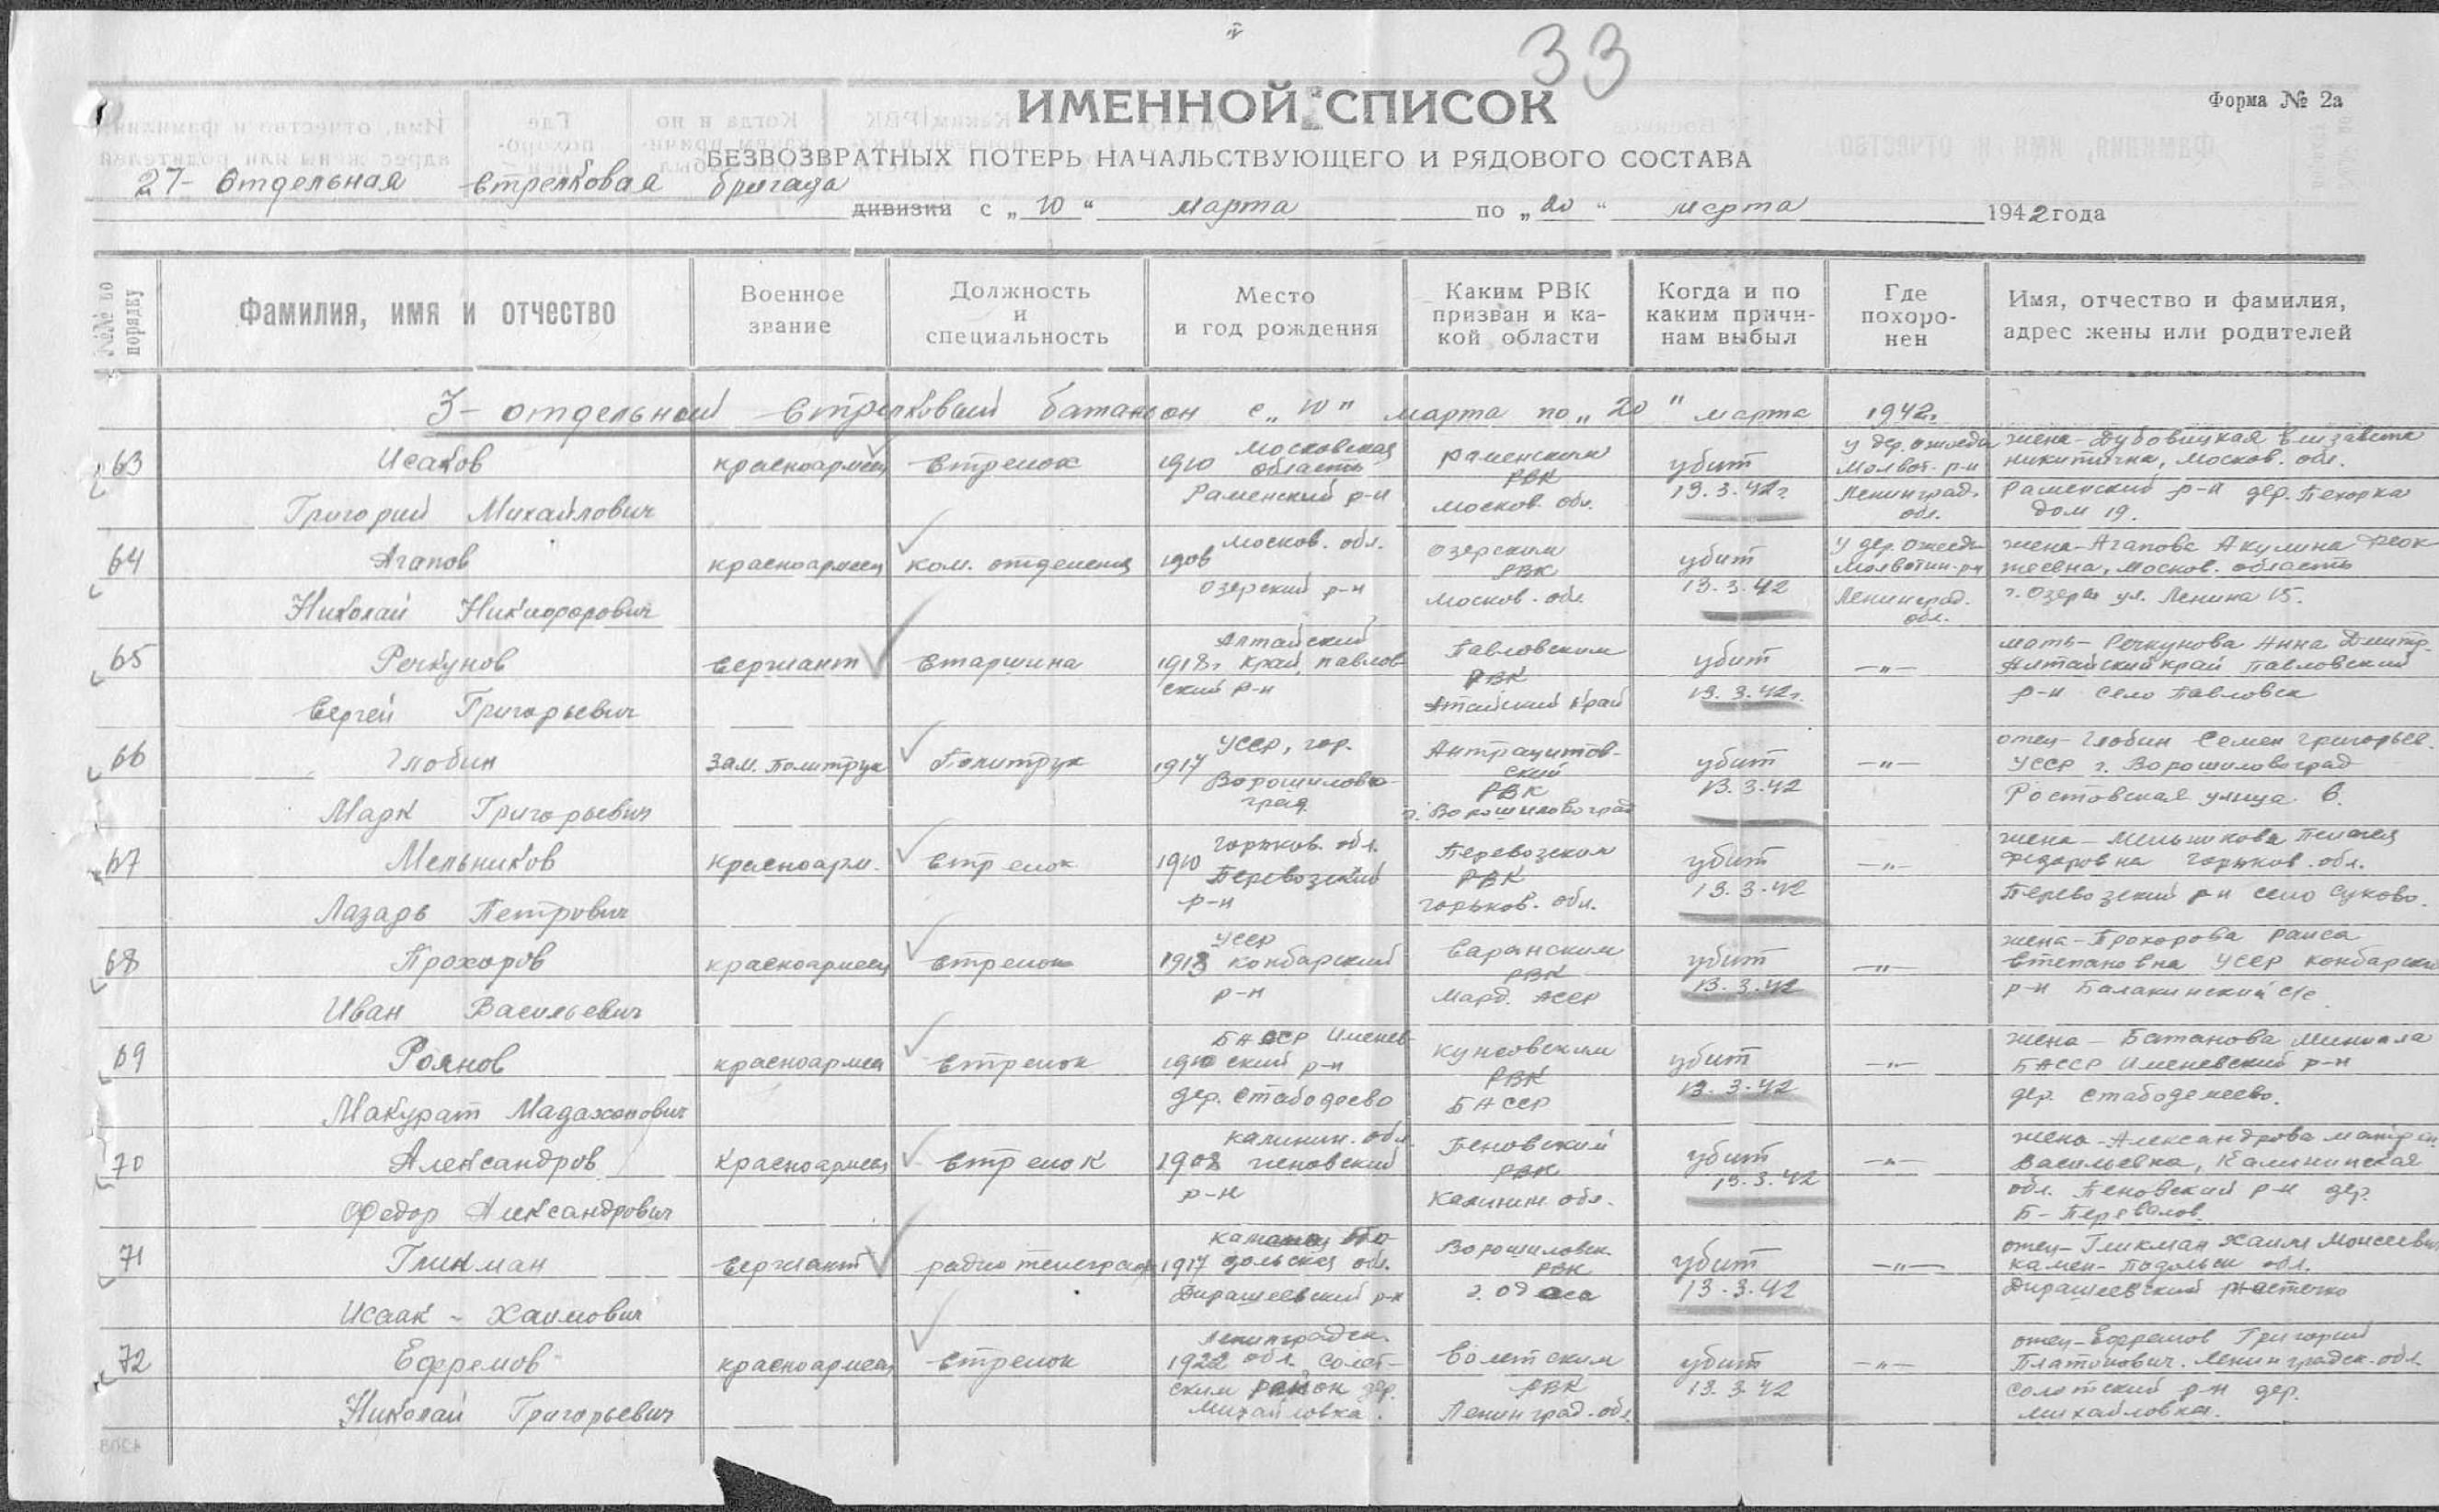 33
ИМЕННОЙ СПИСОК
Форма № 2а
БЕЗВОЗВРАТНЫХ ПОТЕРЬ НАЧАЛЬСТВУЮЩЕГО И РЯДОВОГО СОСТАВА
27- Отдельная стрелковая бригада
дивизии с „10“ марта по „20“ марта 1942 года
№№ по порядку
Фамилия, имя и отчество
Военное звание
Должность и специальность
Место и год рождения
Каким РВК призван и ка-кой области
Когда и по каким причи-нам выбыл
Где похоро-нен
Имя, отчество и фамилия, адрес жены или родителей
3- отдельный стрелковый батальон с „10" марта по „20" марта 1942г.
63 Исаков красноармеец стрелок 1910 Московская область Раменским РВК убит у дер. Молвот. р-н жена - Дубовицкая Елизавета Никитична, Москов. обл.
Григорий Михайлович Раменский р-н Москов. обл. 13.3.42г. Ленинград. обл. Раменский р-н дер. Пехорка дом 19.
64 Агапов красноармеец ком. отделения 1906 Москов. обл. Озерским РВК убит у дер. Молвотин. р-н жена - Агапова Акулина Феок-
Николай Никифорович Озерский р-н Москов. обл. 13.3.42 Ленинград. обл. Москов. область г. Озеры ул. Ленина 15.
65 Речкунов сержант старшина 1918г. Алтайский край, Павлов- Павловским РВК убит —"— мать - Речкунова Анна Дмитр. Алтайский край Павловский
Сергей Григорьевич ский р-н Алтайский край 13.3.42г. р-н село Павловск
66 Глобин зам. политрук Политрук 1917 УССР, гор. Антрацитов-ский РВК убит —"— отец - Глобин Семен Григорьев. УССР г. Ворошиловоград
Марк Григорьевич Ворошилово-град г. Ворошиловоград 13.3.42 Ростовская улица 6.
67 Мельников красноарм. стрелок 1910 Горьков. обл. Перевозским РВК убит —"— жена - Мельникова Пелагея Федоровна Горьков. обл.
Лазарь Петрович Перевозский р-н Горьков. обл. 13.3.42 Перевозский р-н село Суково.
68 Прохоров красноармеец стрелок 1918 УССР Конбарский Саранским РВК убит —"— жена - Прохорова Раиса Степановна УССР Конбарский
Иван Васильевич р-н Морд. АССР 13.3.42 р-н Балакинский с/с
69 Роянов красноармеец стрелок 1910 БАССР Именев-ский р-н РВК убит —"— жена - Батанова БАССР Именевский р-н
Макурат Мадаханович дер. БАССР 13.3.42 дер.
70 Александров красноармеец стрелок 1908 Калинин. обл. Пеновский Пеновский РВК убит —"— жена - Александрова Матрен. Васильевна, Калининская
Федор Александрович р-н Калинин. обл. 13.3.42 обл. Пеновский р-н дер. Б-Перевалов.
71 Гликман сержант радиотелеграф. 1917 Каменец По-дольская обл. Ворошиловск. РВК убит —"— отец - Гликман Хаим Моисеевич Камен-Подольск обл.
Исаак - Хаимович р-н г. Одесса 13.3.42 местечко
72 Ефремов красноармеец стрелок 1922 Ленинградск. обл. Солет- Солетским РВК убит —"— отец - Ефремов Григорий Платонович. Ленинградск. обл.
Николай Григорьевич ским район дер. Михайловка. Ленинград. обл. 13.3.42 Солетский р-н дер. Михайловка.